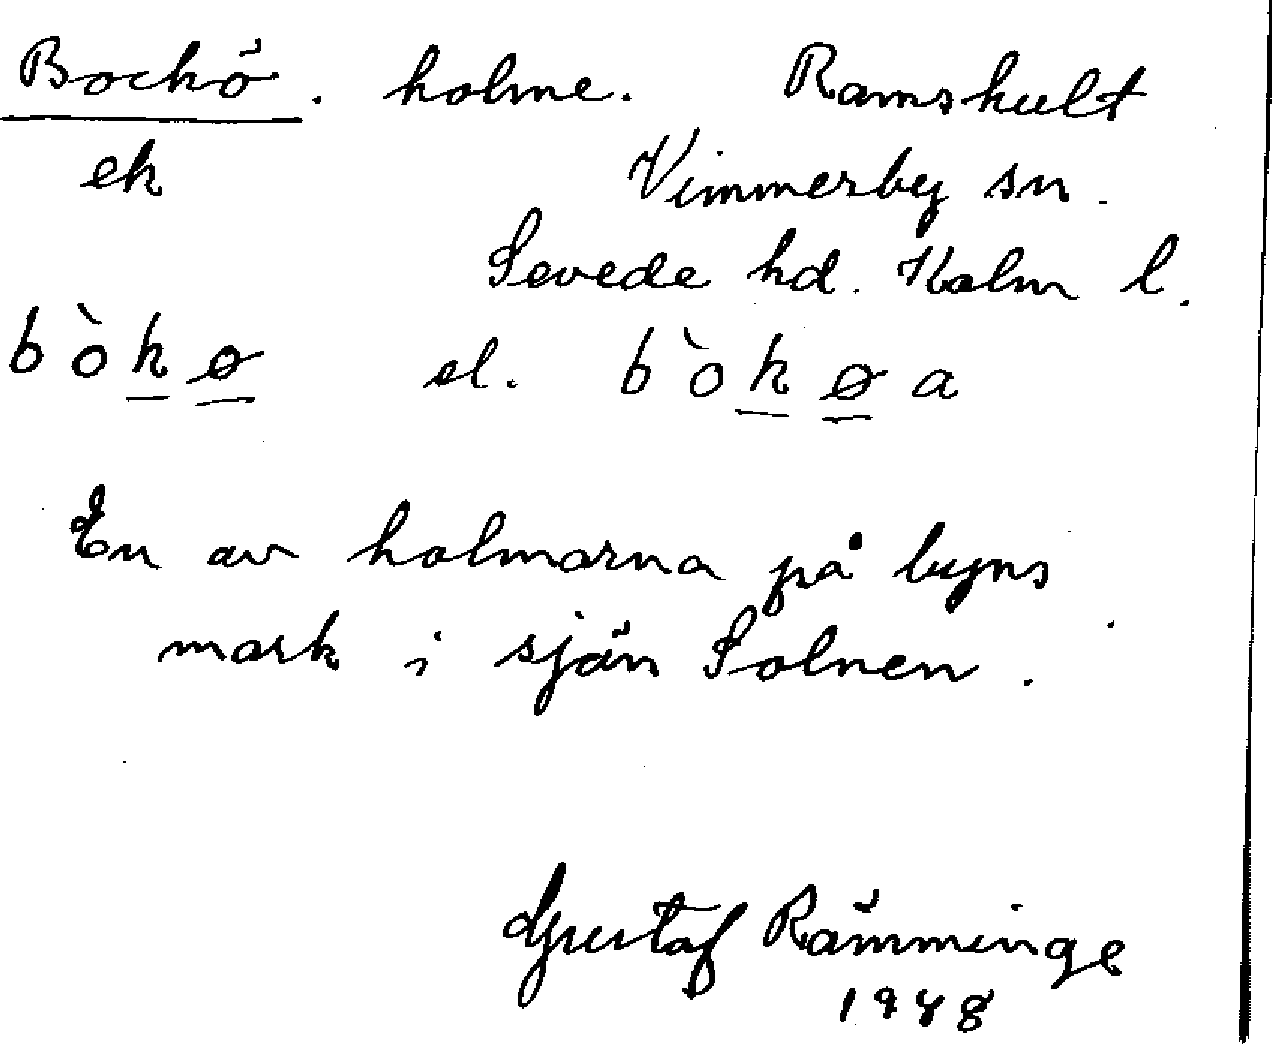 Bockö. holme. Ramshult
ek Vimmerby sn.
Sevede hd. Kalm l.
bòkø el. bòkøa
En av holmarna på byns
mark i sjön Solnen.
Gustaf Rämminge
1948